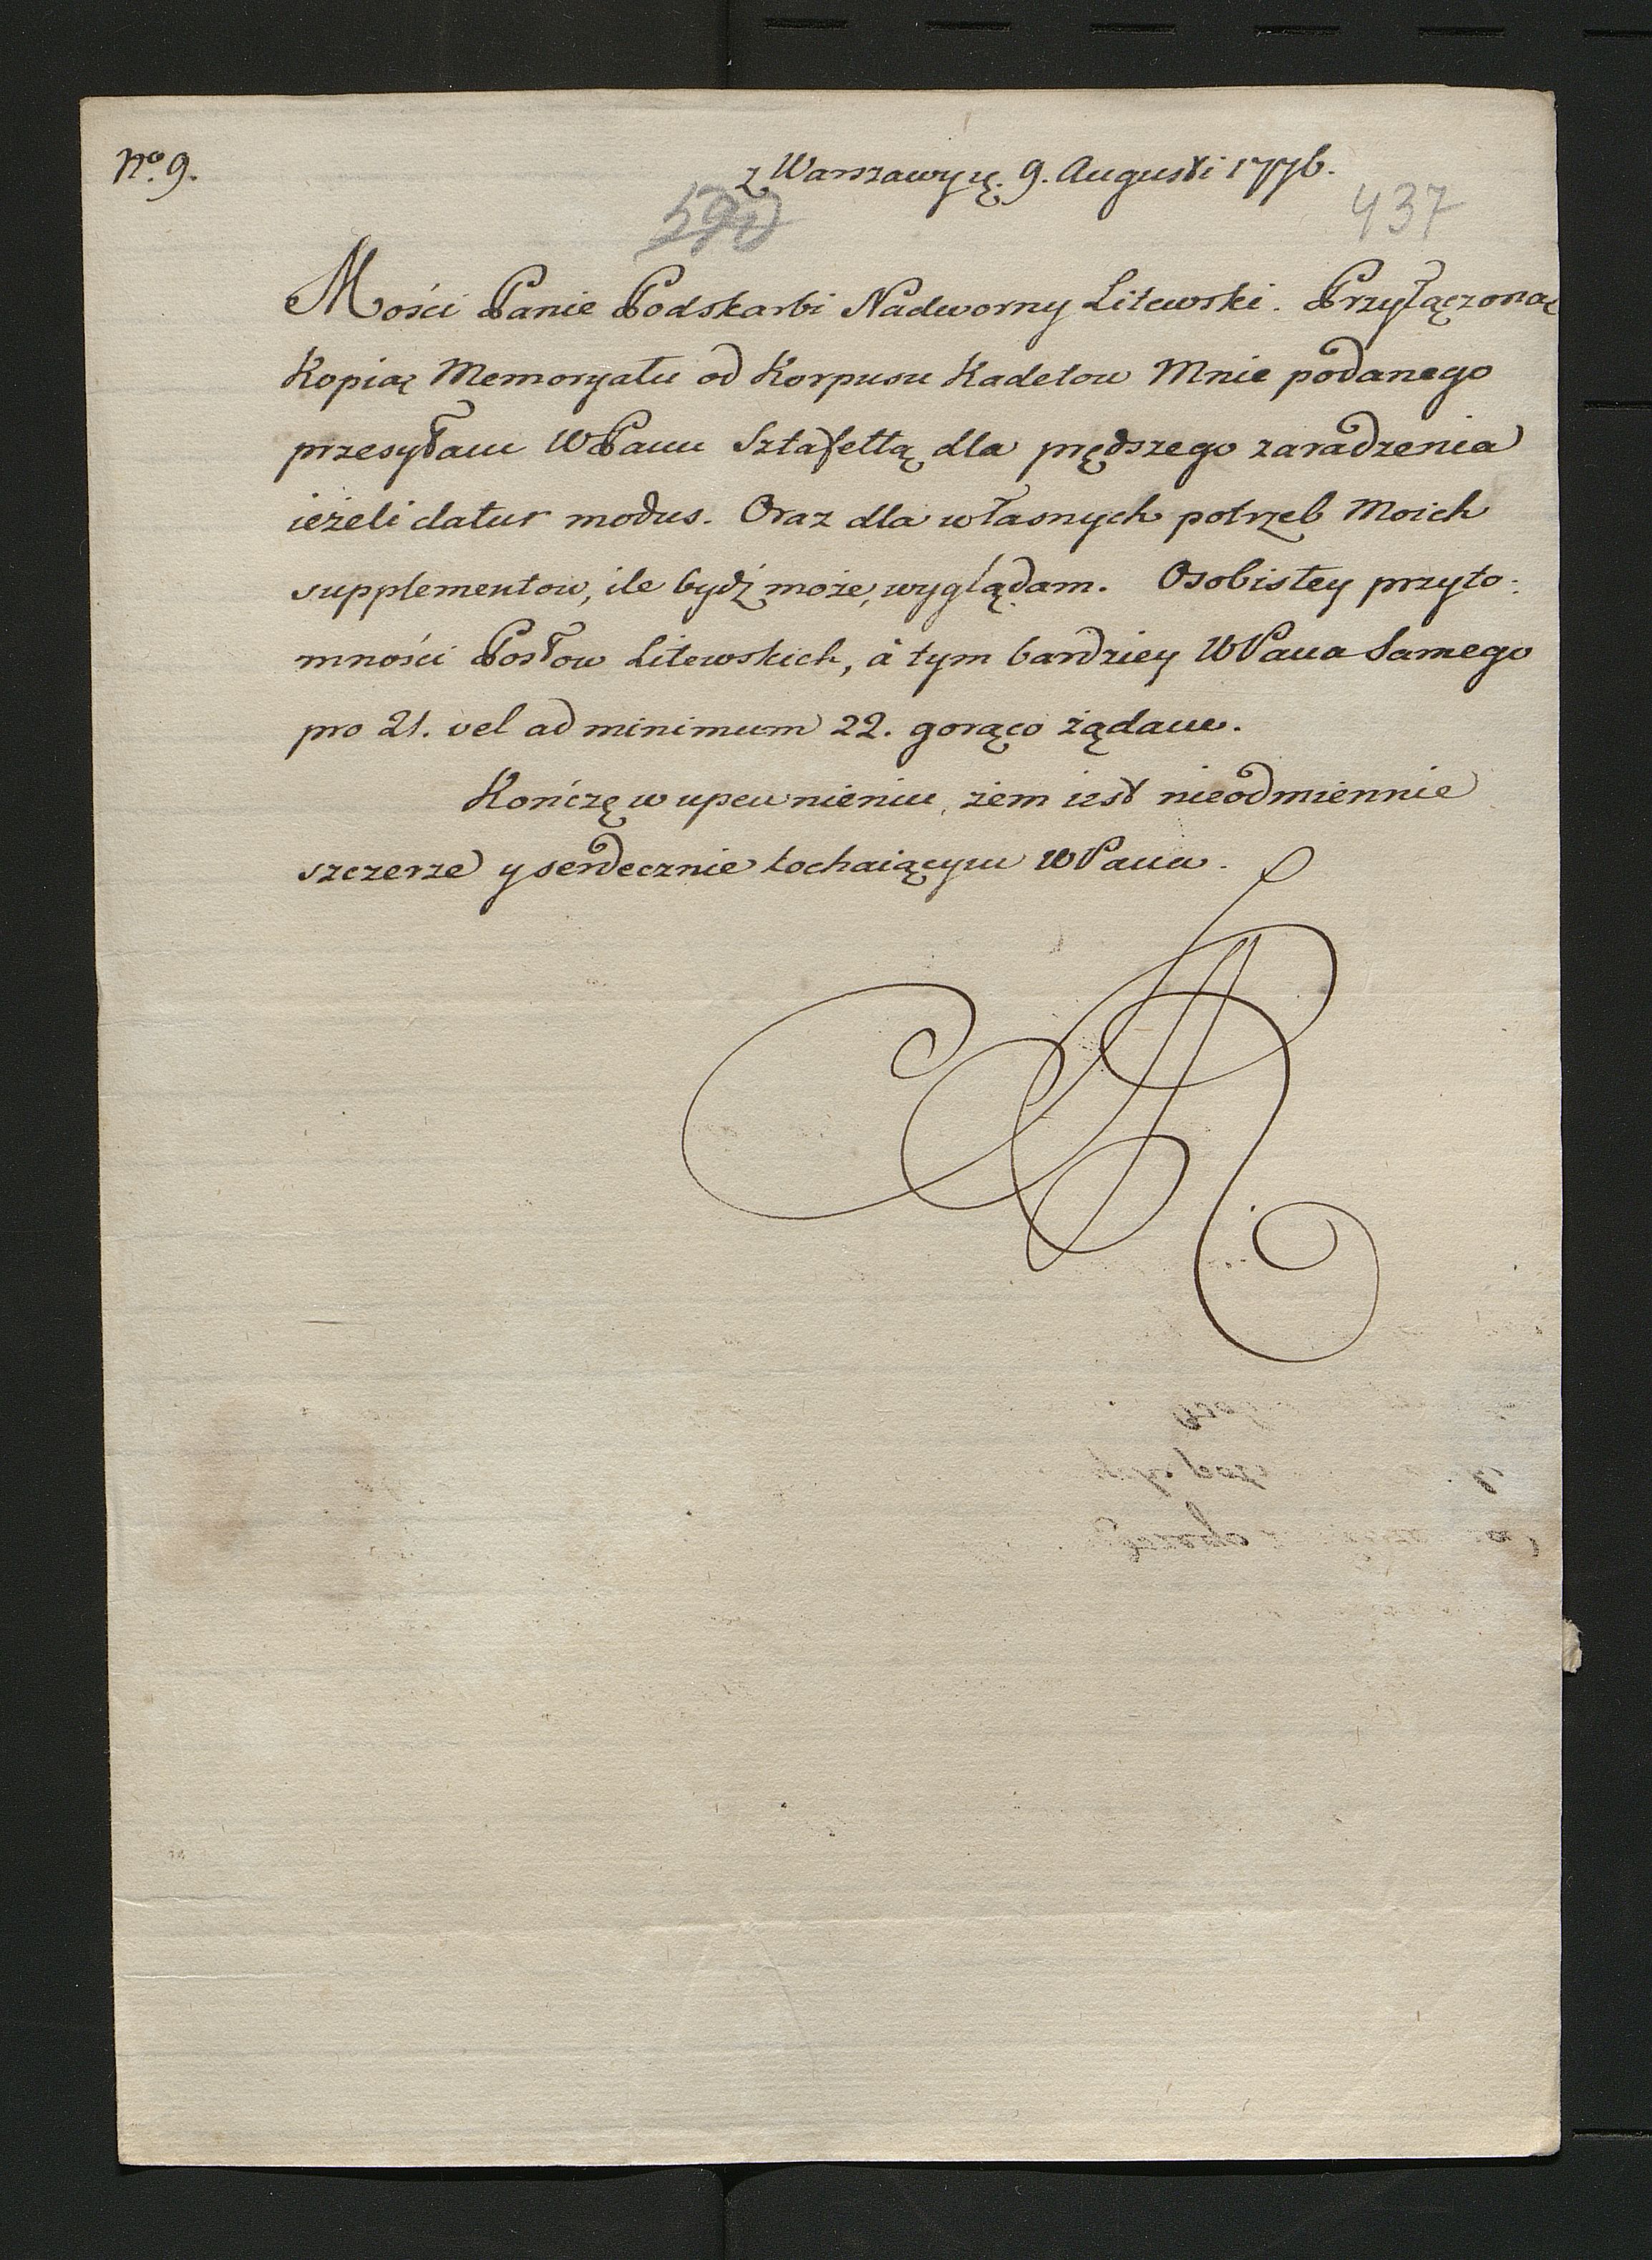 No. 9.
z Warszawy ę. 9. Augusti 1776.
437
Mości Panie Podskarbi Nadworny Litewski. Przyłączoną
Kopią Memoryału od Korpusu Kadetow Mnie podanego
przesyłam WPanu Sztafettą dla prędszego zaradzenia
ieżeli datur modus. Oraz dla własnych potrzeb Moich
supplementow, ile bydź może, wyglądam. Osobistey przyto:
mności Posłow Litewskich, à tym bardziey WPana Samego
pro 21. vel ad minimum 22. gorąco żądam.
Kończę w upewnieniu, żem iest nieodmiennie
szczerze y serdecznie kochaiącym WPana.